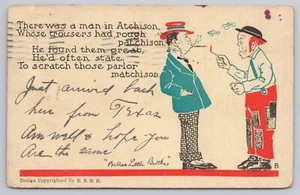 There was a man in Atchison,
Whose trousers had rough
patchison,
He found them great,
He'd often state,
To scratch those parlor
matchison
Just arrived back
here from Texas
Am well & hope you
are the same
"Billies Little Bertha"
8
Design Copyrighted by